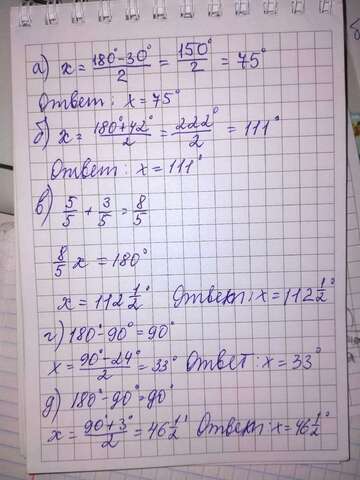 а) x = (180° - 30°)/2 = 150°/2 = 75°
Ответ: x = 75°
б) x = (180° + 42°)/2 = 222°/2 = 111°
Ответ: x = 111°
в) 5/5 + 3/5 = 8/5
8/5 x = 180°
x = 112 1/2° Ответ: x = 112 1/2°
г) 180° - 90° = 90°
x = (90° - 24°)/2 = 33° Ответ: x = 33°
д) 180° - 90° = 90°
x = (90° + 3°)/2 = 46 1/2° Ответ: x = 46 1/2°